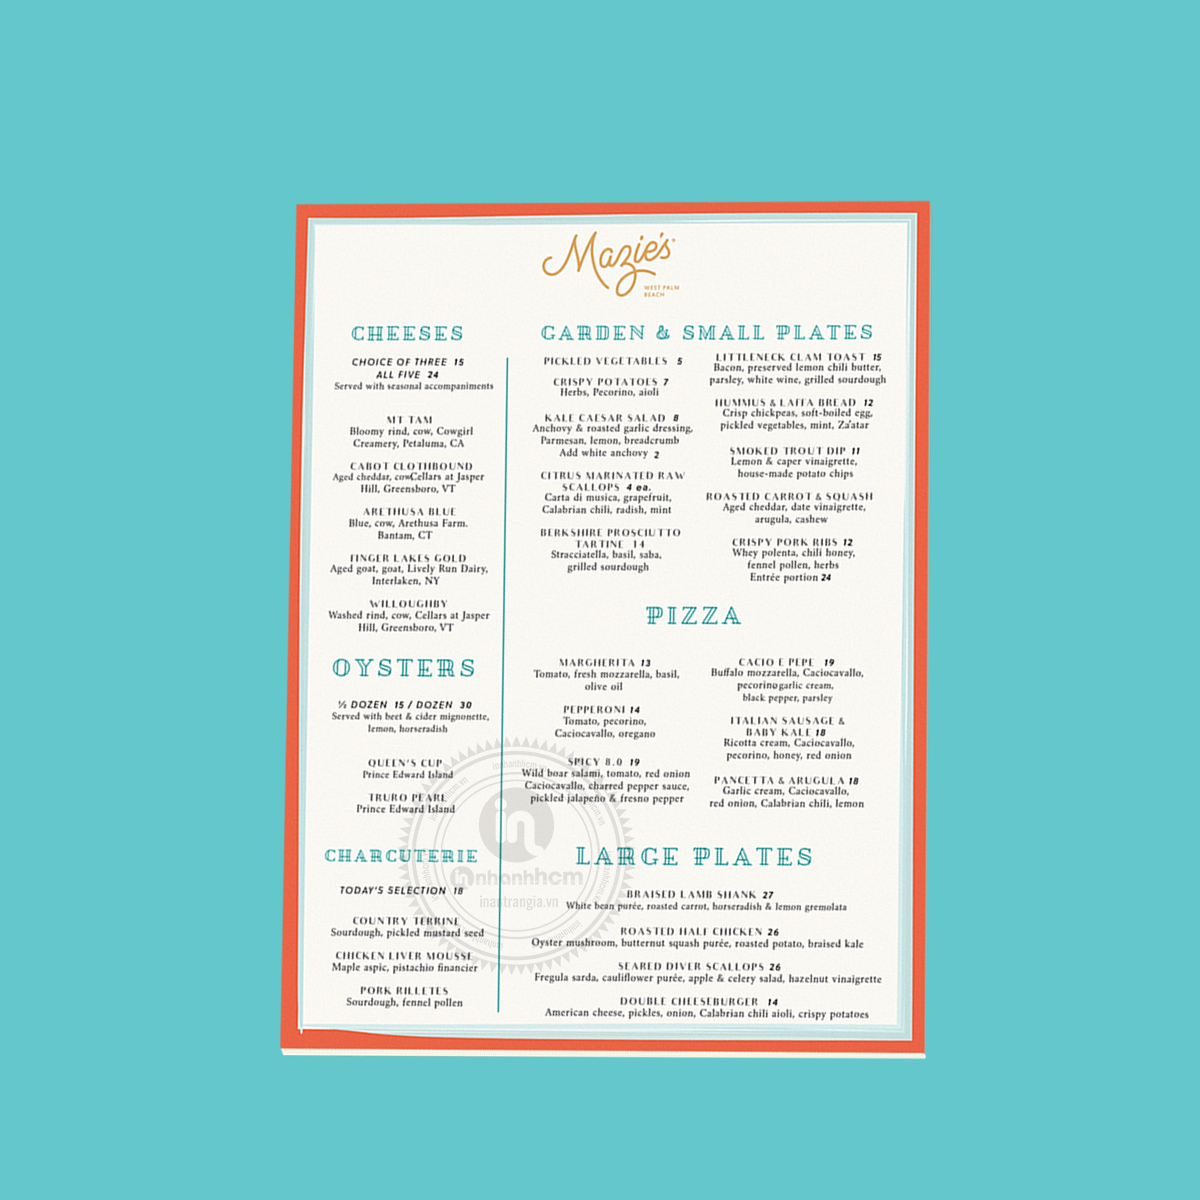 Mazie's
WEST PALM
BEACH
CHEESES
CHOICE OF THREE 15
ALL FIVE 24
Served with seasonal accompaniments
MT TAM
Bloomy rind, cow, Cowgirl
Creamery, Petaluma, CA
CABOT CLOTHBOUND
Aged cheddar, cowCellars at Jasper
Hill, Greensboro, VT
ARETHUSA BLUE
Blue, cow, Arethusa Farm.
Bantam, CT
FINGER LAKES GOLD
Aged goat, goat, Lively Run Dairy,
Interlaken, NY
WILLOUGHBY
Washed rind, cow, Cellars at Jasper
Hill, Greensboro, VT
OYSTERS
½ DOZEN 15 / DOZEN 30
Served with beet & cider mignonette,
lemon, horseradish
QUEEN'S CUP
Prince Edward Island
TRURO PEARL
Prince Edward Island
CHARCUTERIE
TODAY'S SELECTION 18
COUNTRY TERRINE
Sourdough, pickled mustard seed
CHICKEN LIVER MOUSSE
Maple aspic, pistachio financier
PORK RILLETES
Sourdough, fennel pollen
GARDEN & SMALL PLATES
PICKLED VEGETABLES 5
CRISPY POTATOES 7
Herbs, Pecorino, aioli
KALE CAESAR SALAD 8
Anchovy & roasted garlic dressing,
Parmesan, lemon, breadcrumb
Add white anchovy 2
CITRUS MARINATED RAW
SCALLOPS 4 ea.
Carta di musica, grapefruit,
Calabrian chili, radish, mint
BERKSHIRE PROSCIUTTO
TARTINE 14
Stracciatella, basil, saba,
grilled sourdough
LITTLENECK CLAM TOAST 15
Bacon, preserved lemon chili butter,
parsley, white wine, grilled sourdough
HUMMUS & LAFFA BREAD 12
Crisp chickpeas, soft-boiled egg,
pickled vegetables, mint, Za'atar
SMOKED TROUT DIP 11
Lemon & caper vinaigrette,
house-made potato chips
ROASTED CARROT & SQUASH
Aged cheddar, date vinaigrette,
arugula, cashew
CRISPY PORK RIBS 12
Whey polenta, chili honey,
fennel pollen, herbs
Entrée portion 24
PIZZA
MARGHERITA 13
Tomato, fresh mozzarella, basil,
olive oil
PEPPERONI 14
Tomato, pecorino,
Caciocavallo, oregano
SPICY 8.0 19
Wild boar salami, tomato, red onion
Caciocavallo, charred pepper sauce,
pickled jalapeño & fresno pepper
CACIO E PEPE 19
Buffalo mozzarella, Caciocavallo,
pecorinogarlic cream,
black pepper, parsley
ITALIAN SAUSAGE &
BABY KALE 18
Ricotta cream, Caciocavallo,
pecorino, honey, red onion
PANCETTA & ARUGULA 18
Garlic cream, Caciocavallo,
red onion, Calabrian chili, lemon
LARGE PLATES
BRAISED LAMB SHANK 27
White bean purée, roasted carrot, horseradish & lemon gremolata
ROASTED HALF CHICKEN 26
Oyster mushroom, butternut squash purée, roasted potato, braised kale
SEARED DIVER SCALLOPS 26
Fregula sarda, cauliflower purée, apple & celery salad, hazelnut vinaigrette
DOUBLE CHEESEBURGER 14
American cheese, pickles, onion, Calabrian chili aioli, crispy potatoes
in
innhanhhcm
inantrangia.vn